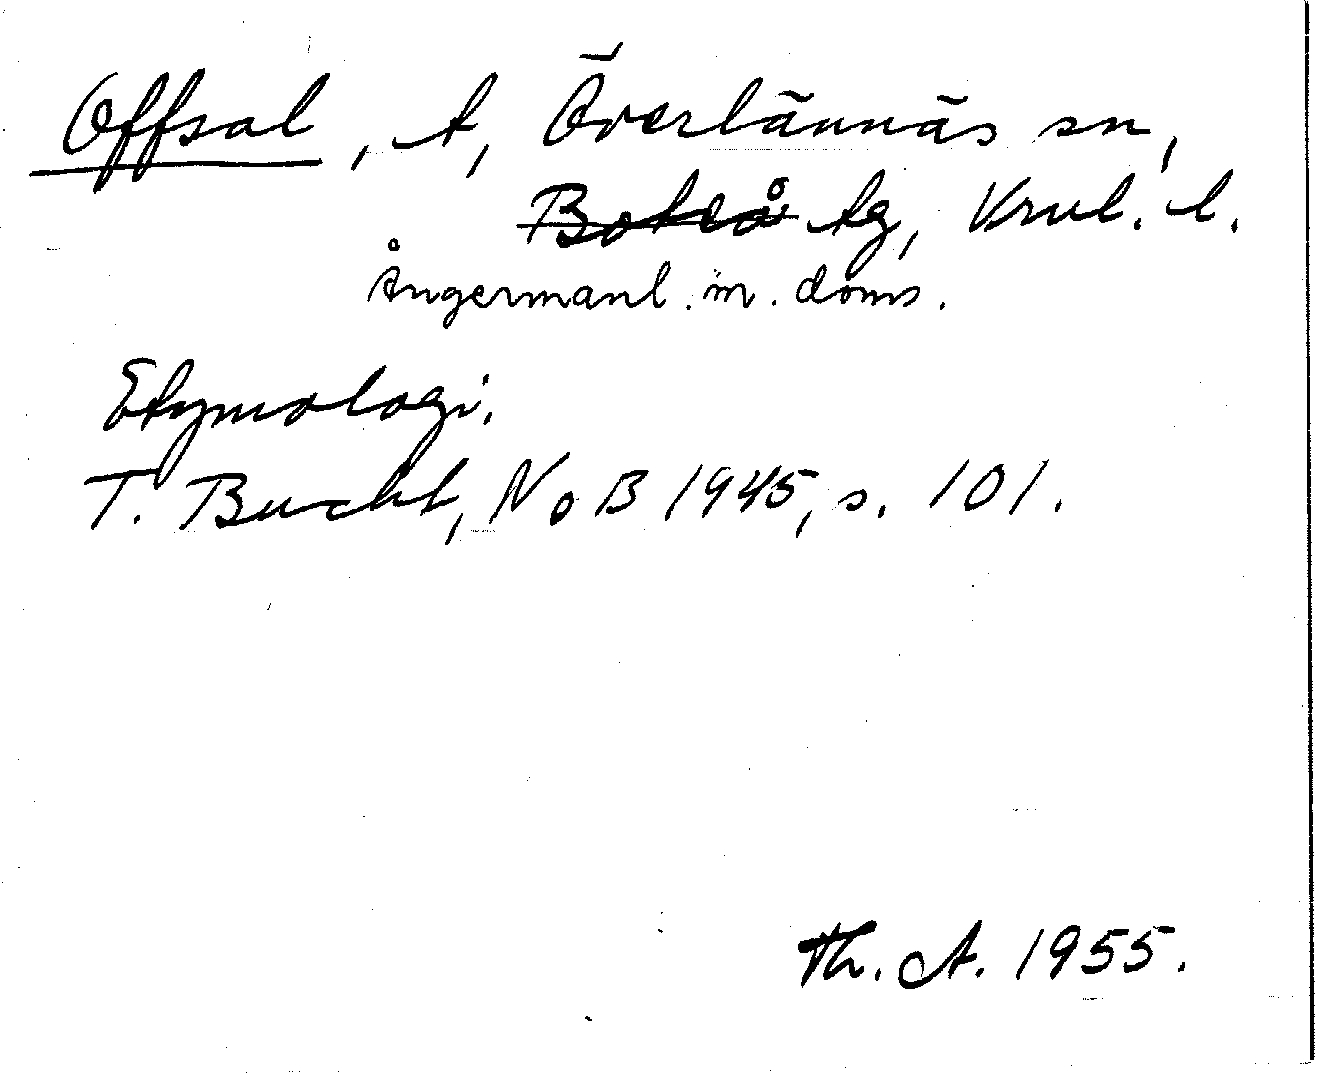 Offsal, A, Överlännäs sn,
Boteå tg, Vrnl. l.
Ångermanl. m. doms.
Etymologi.
T. Bucht, NoB 1945, s. 101.
Th. A. 1955.